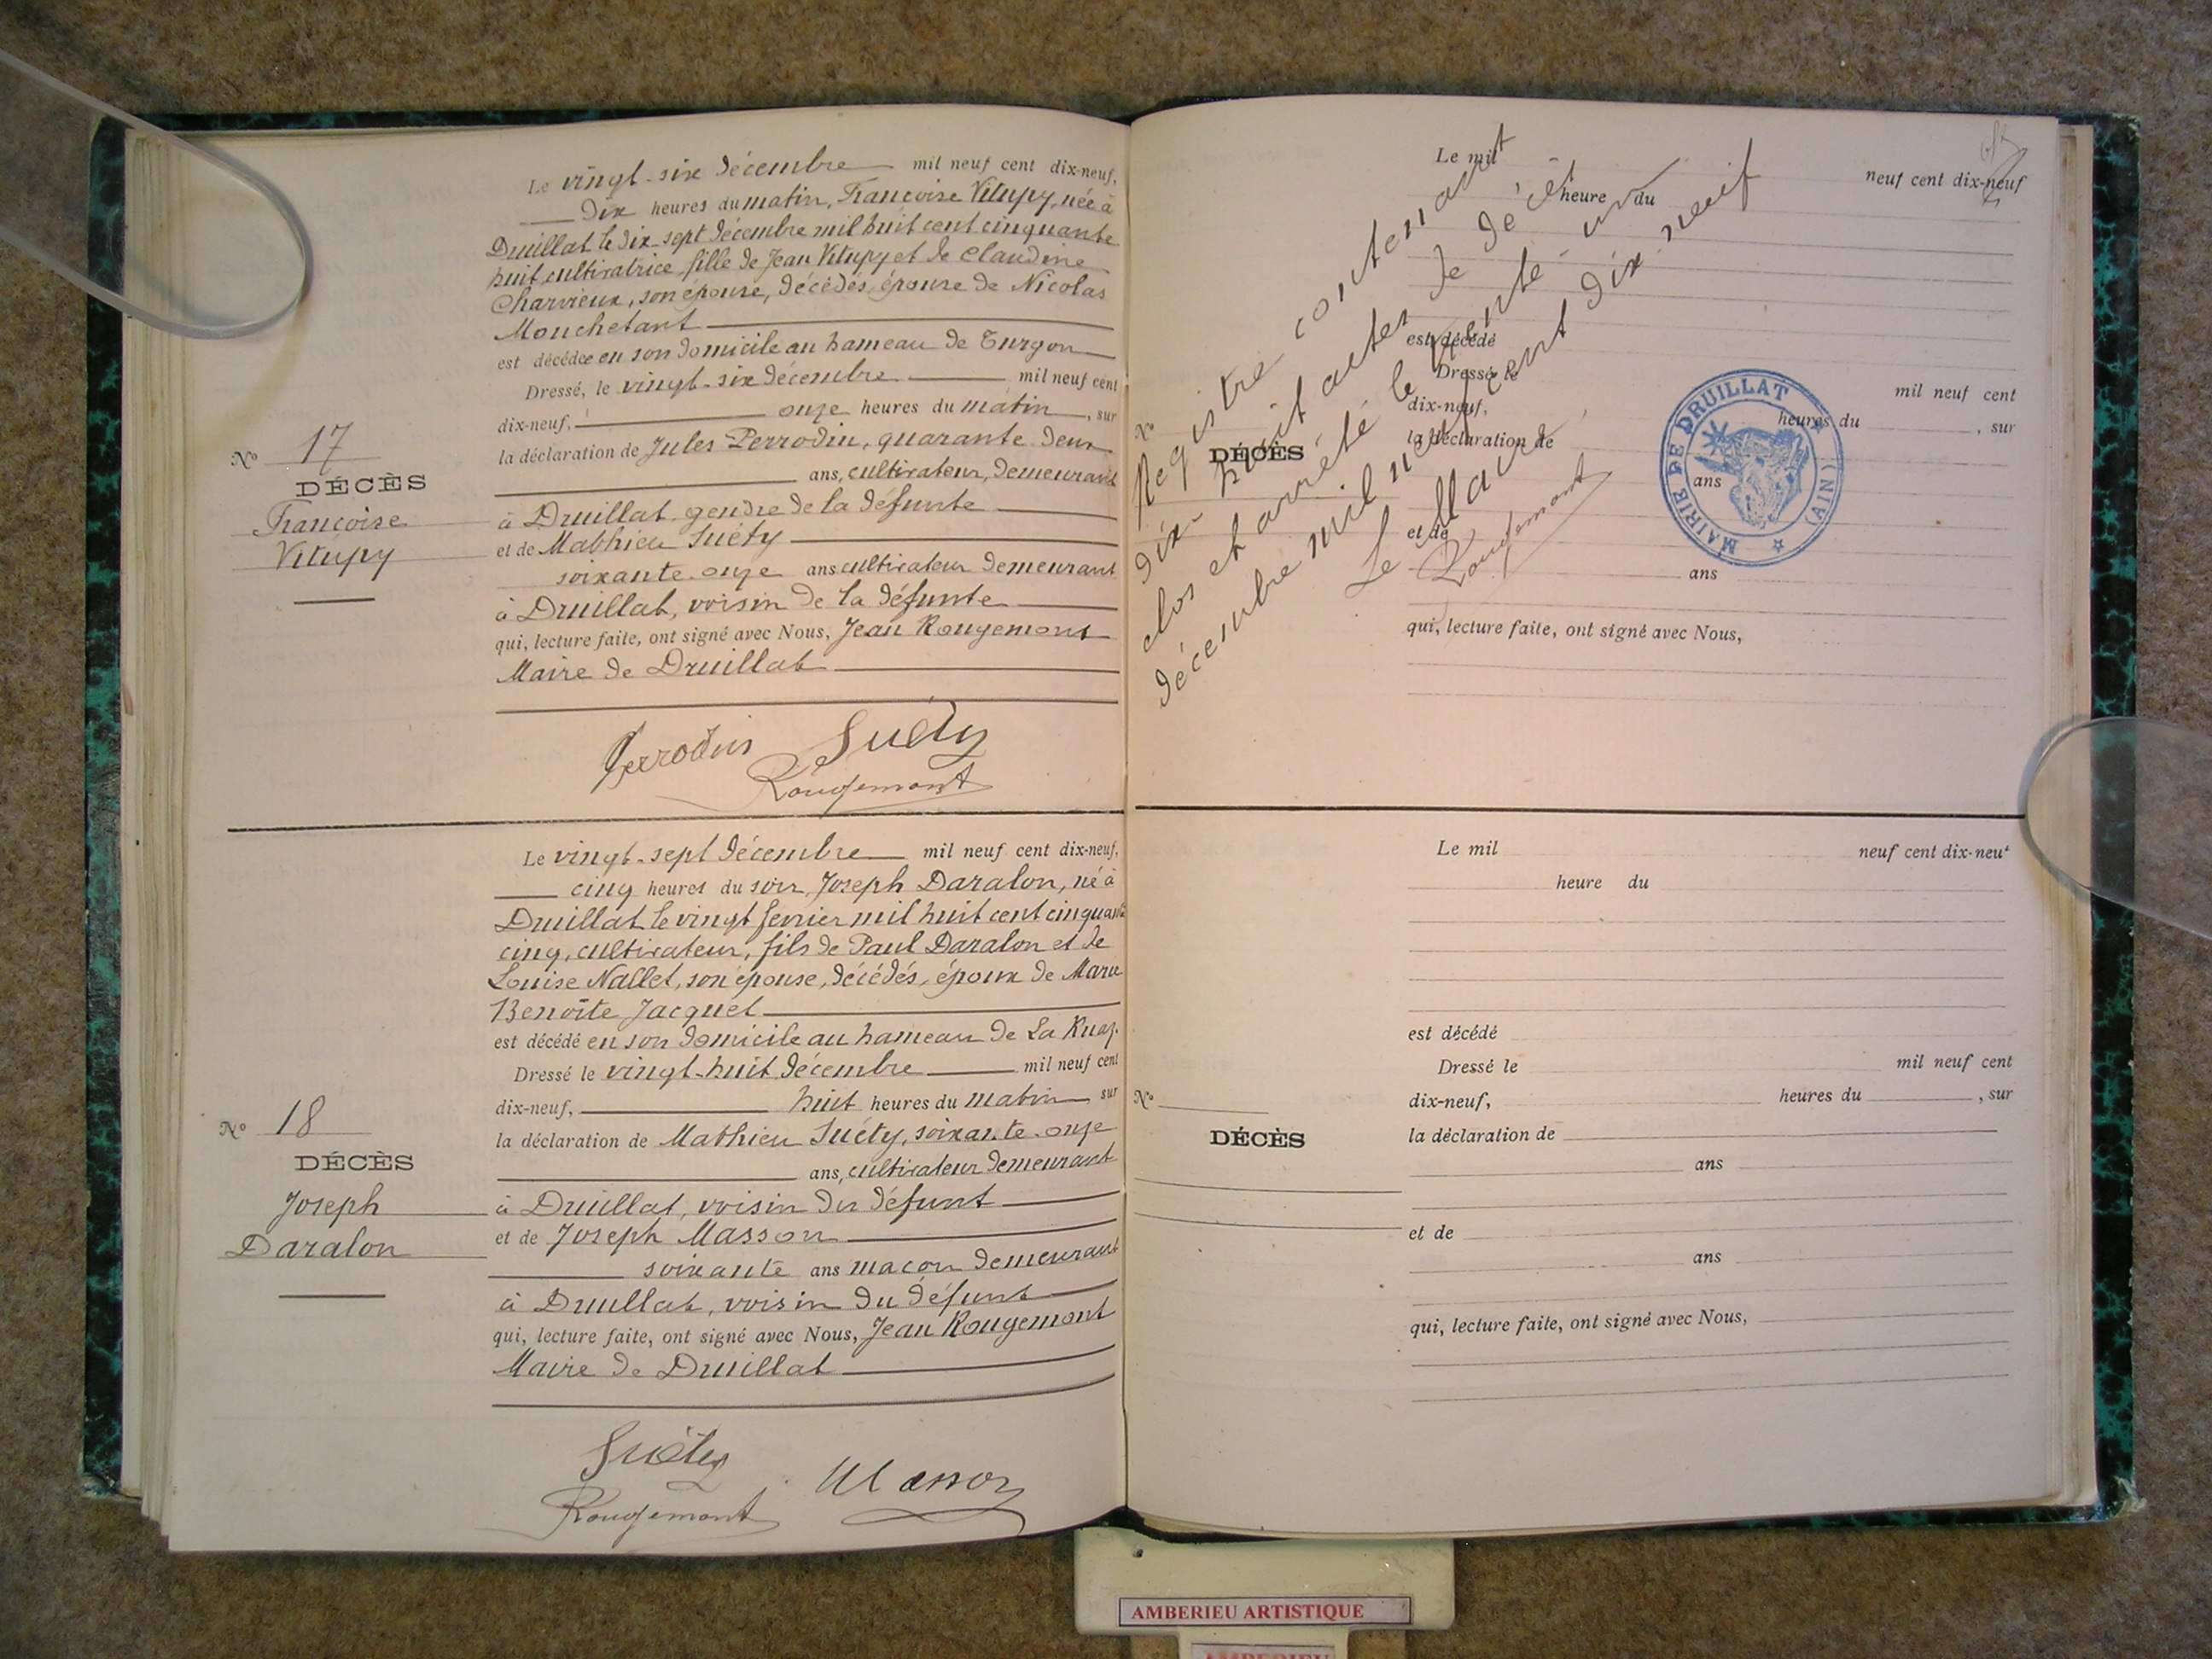 Le vingt-six décembre mil neuf cent dix-neuf,
dix heures du matin, Françoise Vitupy, née à
Druillat le dix-sept décembre mil huit cent cinquante
huit, cultivatrice, fille de Jean Vitupy et de Claudine
Charvieux, son épouse, décédés, épouse de Nicolas
Mouchetant
est décédée en son domicile au hameau de Turgon
Dressé, le vingt-six décembre mil neuf cent
dix-neuf, onze heures du matin, sur
la déclaration de Jules Perrodin, quarante-deux
ans, cultivateur, demeurant
à Druillat, gendre de la défunte
et de Mathieu Suéty
soixante-onze ans cultivateur demeurant
à Druillat, voisin de la défunte
qui, lecture faite, ont signé avec Nous, Jean Rougemont
Maire de Druillat
Perrodin Suéty
Rougemont
No 17
DÉCÈS
Françoise
Vitupy
Le vingt-sept décembre mil neuf cent dix-neuf,
cinq heures du soir, Joseph Daralon, né à
Druillat le vingt fevrier mil huit cent cinquante
cinq, cultivateur, fils de Paul Daralon et de
Louise Nallet, son épouse, décédés, époux de Marie
Benoîte Jacquet
est décédé en son domicile au hameau de La Ruaz.
Dressé le vingt-huit décembre mil neuf cent
dix-neuf, huit heures du matin sur
la déclaration de Mathieu Suéty, soixante-onze
ans, cultivateur demeurant
à Druillat, voisin du défunt
et de Joseph Masson
soixante ans maçon demeurant
à Druillat, voisin du défunt
qui, lecture faite, ont signé avec Nous, Jean Rougemont
Maire de Druillat
Suéty
Masson
Rougemont
No 18
DÉCÈS
Joseph
Daralon
Le mil neuf cent dix-neuf
heure du
est décédé
Dressé le mil neuf cent
dix-neuf, heures du , sur
la déclaration de
ans
et de
ans
qui, lecture faite, ont signé avec Nous,
No
DÉCÈS
Registre contenant
dix-huit actes de décès
clos et arrêté le trente-un
décembre mil neuf cent dix neuf
Le Maire
Rougemont
MAIRIE DE DRUILLAT
(AIN)
Le mil neuf cent dix-neuf
heure du
est décédé
Dressé le mil neuf cent
dix-neuf, heures du , sur
la déclaration de
ans
et de
ans
qui, lecture faite, ont signé avec Nous,
No
DÉCÈS
AMBERIEU ARTISTIQUE
AMBERIEU